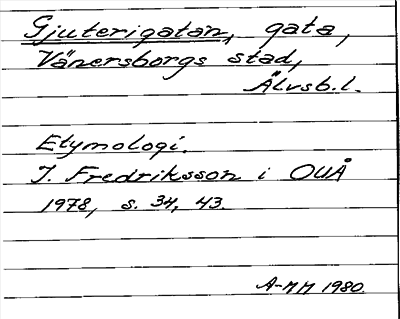 Gjuterigatan, gata,
Vänersborgs stad,
Älvsb.l.
Etymologi.
I. Fredriksson i OUÅ
1978, s. 34, 43.
A-MM 1980.